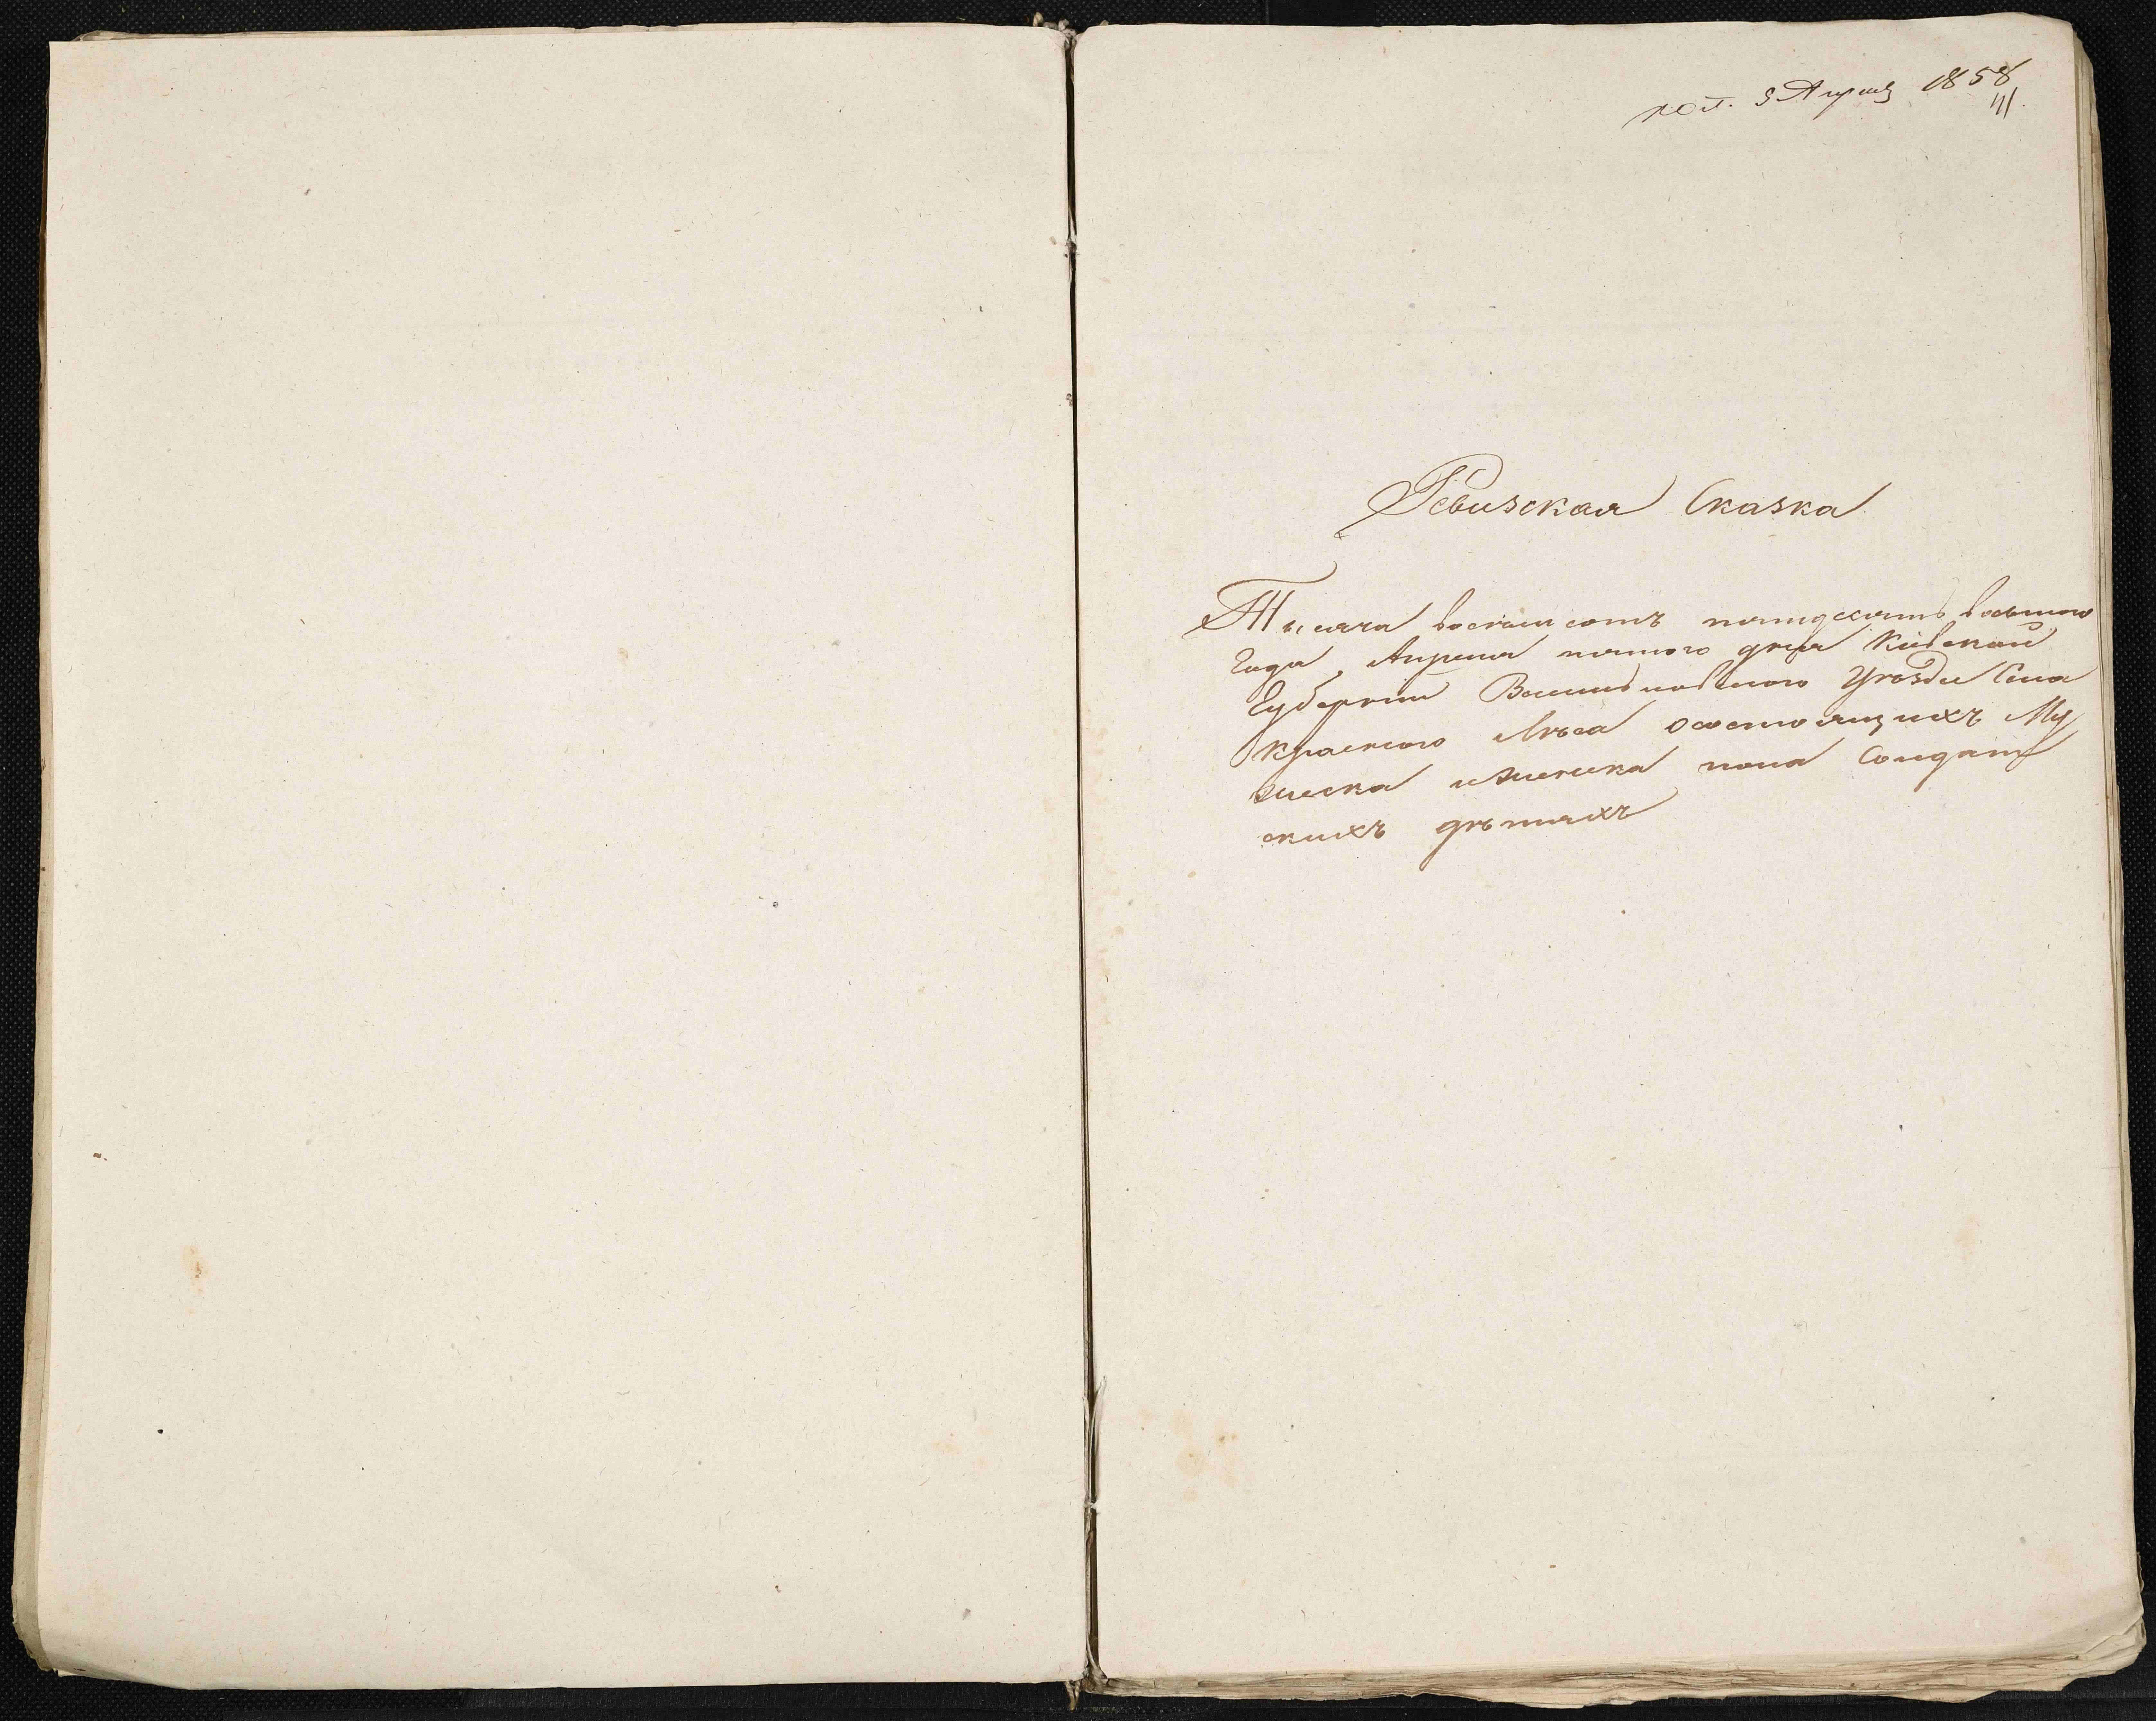 пол. 5 Апреля 1858
Ревизская Сказка
Тысяча восемьсотъ пятидесятъ восьмого
Года, Апреля пятого дня Кіевской
Губерніи Васильковского Уезда Села
Краснего Лѣса осостоящихъ Му
жеска иженска пола Солдат
скихъ дѣтяхъ